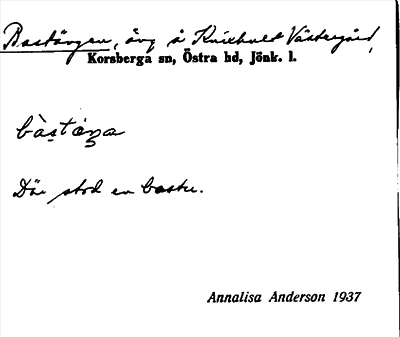 Bastängen, äng å Knixhult Västergård,
Korsberga sn, Östra hd, Jönk. l.
bàstäṉa
Där stod en bastu.
Annalisa Anderson 1937